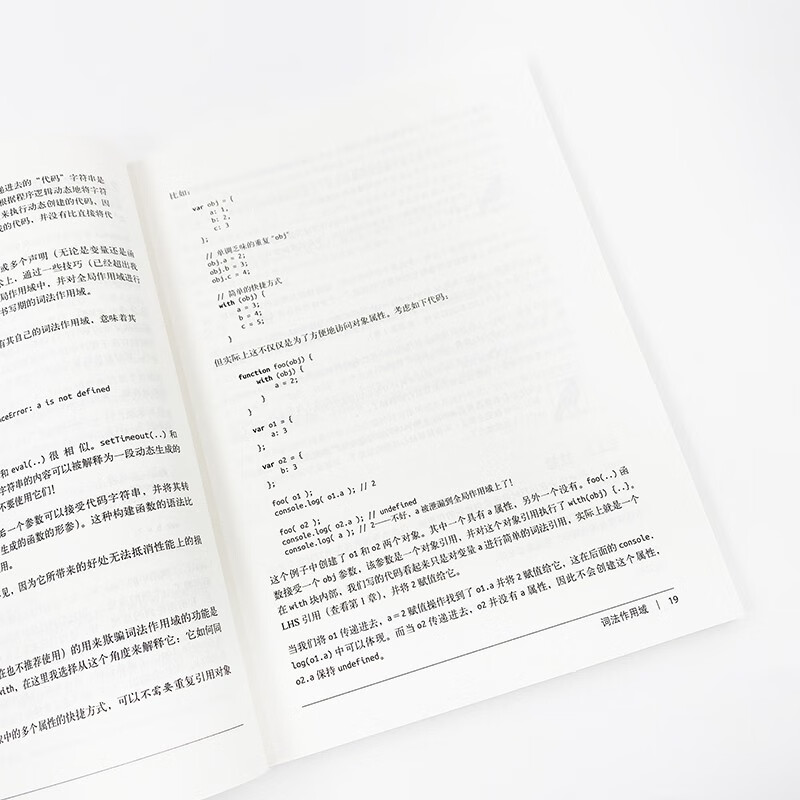 递进去的“代码”字符串是
根据程序逻辑动态地将字符
来执行动态创建的代码，因
的代码，并没有比直接将代
或多个声明（无论是变量还是函
上，通过一些技巧（已经超出我
局作用域中，并对全局作用域进行
书写期的词法作用域。
有其自己的词法作用域，意味着其
ceError: a is not defined
和 eval(..) 很 相 似。setTimeout(..) 和
字符串的内容可以被解释为一段动态生成的
不要使用它们！
后一个参数可以接受代码字符串，并将其转
生成的函数的形参）。这种构建函数的语法比
用。
见，因为它所带来的好处无法抵消性能上的损
在也不推荐使用）的用来欺骗词法作用域的功能是
with，在这里我选择从这个角度来解释它：它如何同
象中的多个属性的快捷方式，可以不需要重复引用对象
比如：
var obj = {
a: 1,
b: 2,
c: 3
};
// 单调乏味的重复 "obj"
obj.a = 2;
obj.b = 3;
obj.c = 4;
// 简单的快捷方式
with (obj) {
a = 3;
b = 4;
c = 5;
}
但实际上这不仅仅是为了方便地访问对象属性。考虑如下代码：
function foo(obj) {
with (obj) {
a = 2;
}
}
var o1 = {
a: 3
};
var o2 = {
b: 3
};
foo( o1 );
console.log( o1.a ); // 2
foo( o2 );
console.log( o2.a ); // undefined
console.log( a ); // 2——不好，a 被泄漏到全局作用域上了！
这个例子中创建了 o1 和 o2 两个对象。其中一个具有 a 属性，另外一个没有。foo(..) 函
数接受一个 obj 参数，该参数是一个对象引用，并对这个对象引用执行了 with(obj) {..}。
在 with 块内部，我们写的代码看起来只是对变量 a 进行简单的词法引用，实际上就是一个
LHS 引用（查看第 1 章），并将 2 赋值给它。
当我们将 o1 传递进去，a＝2 赋值操作找到了 o1.a 并将 2 赋值给它，这在后面的 console.
log(o1.a) 中可以体现。而当 o2 传递进去，o2 并没有 a 属性，因此不会创建这个属性，
o2.a 保持 undefined。
词法作用域 | 19